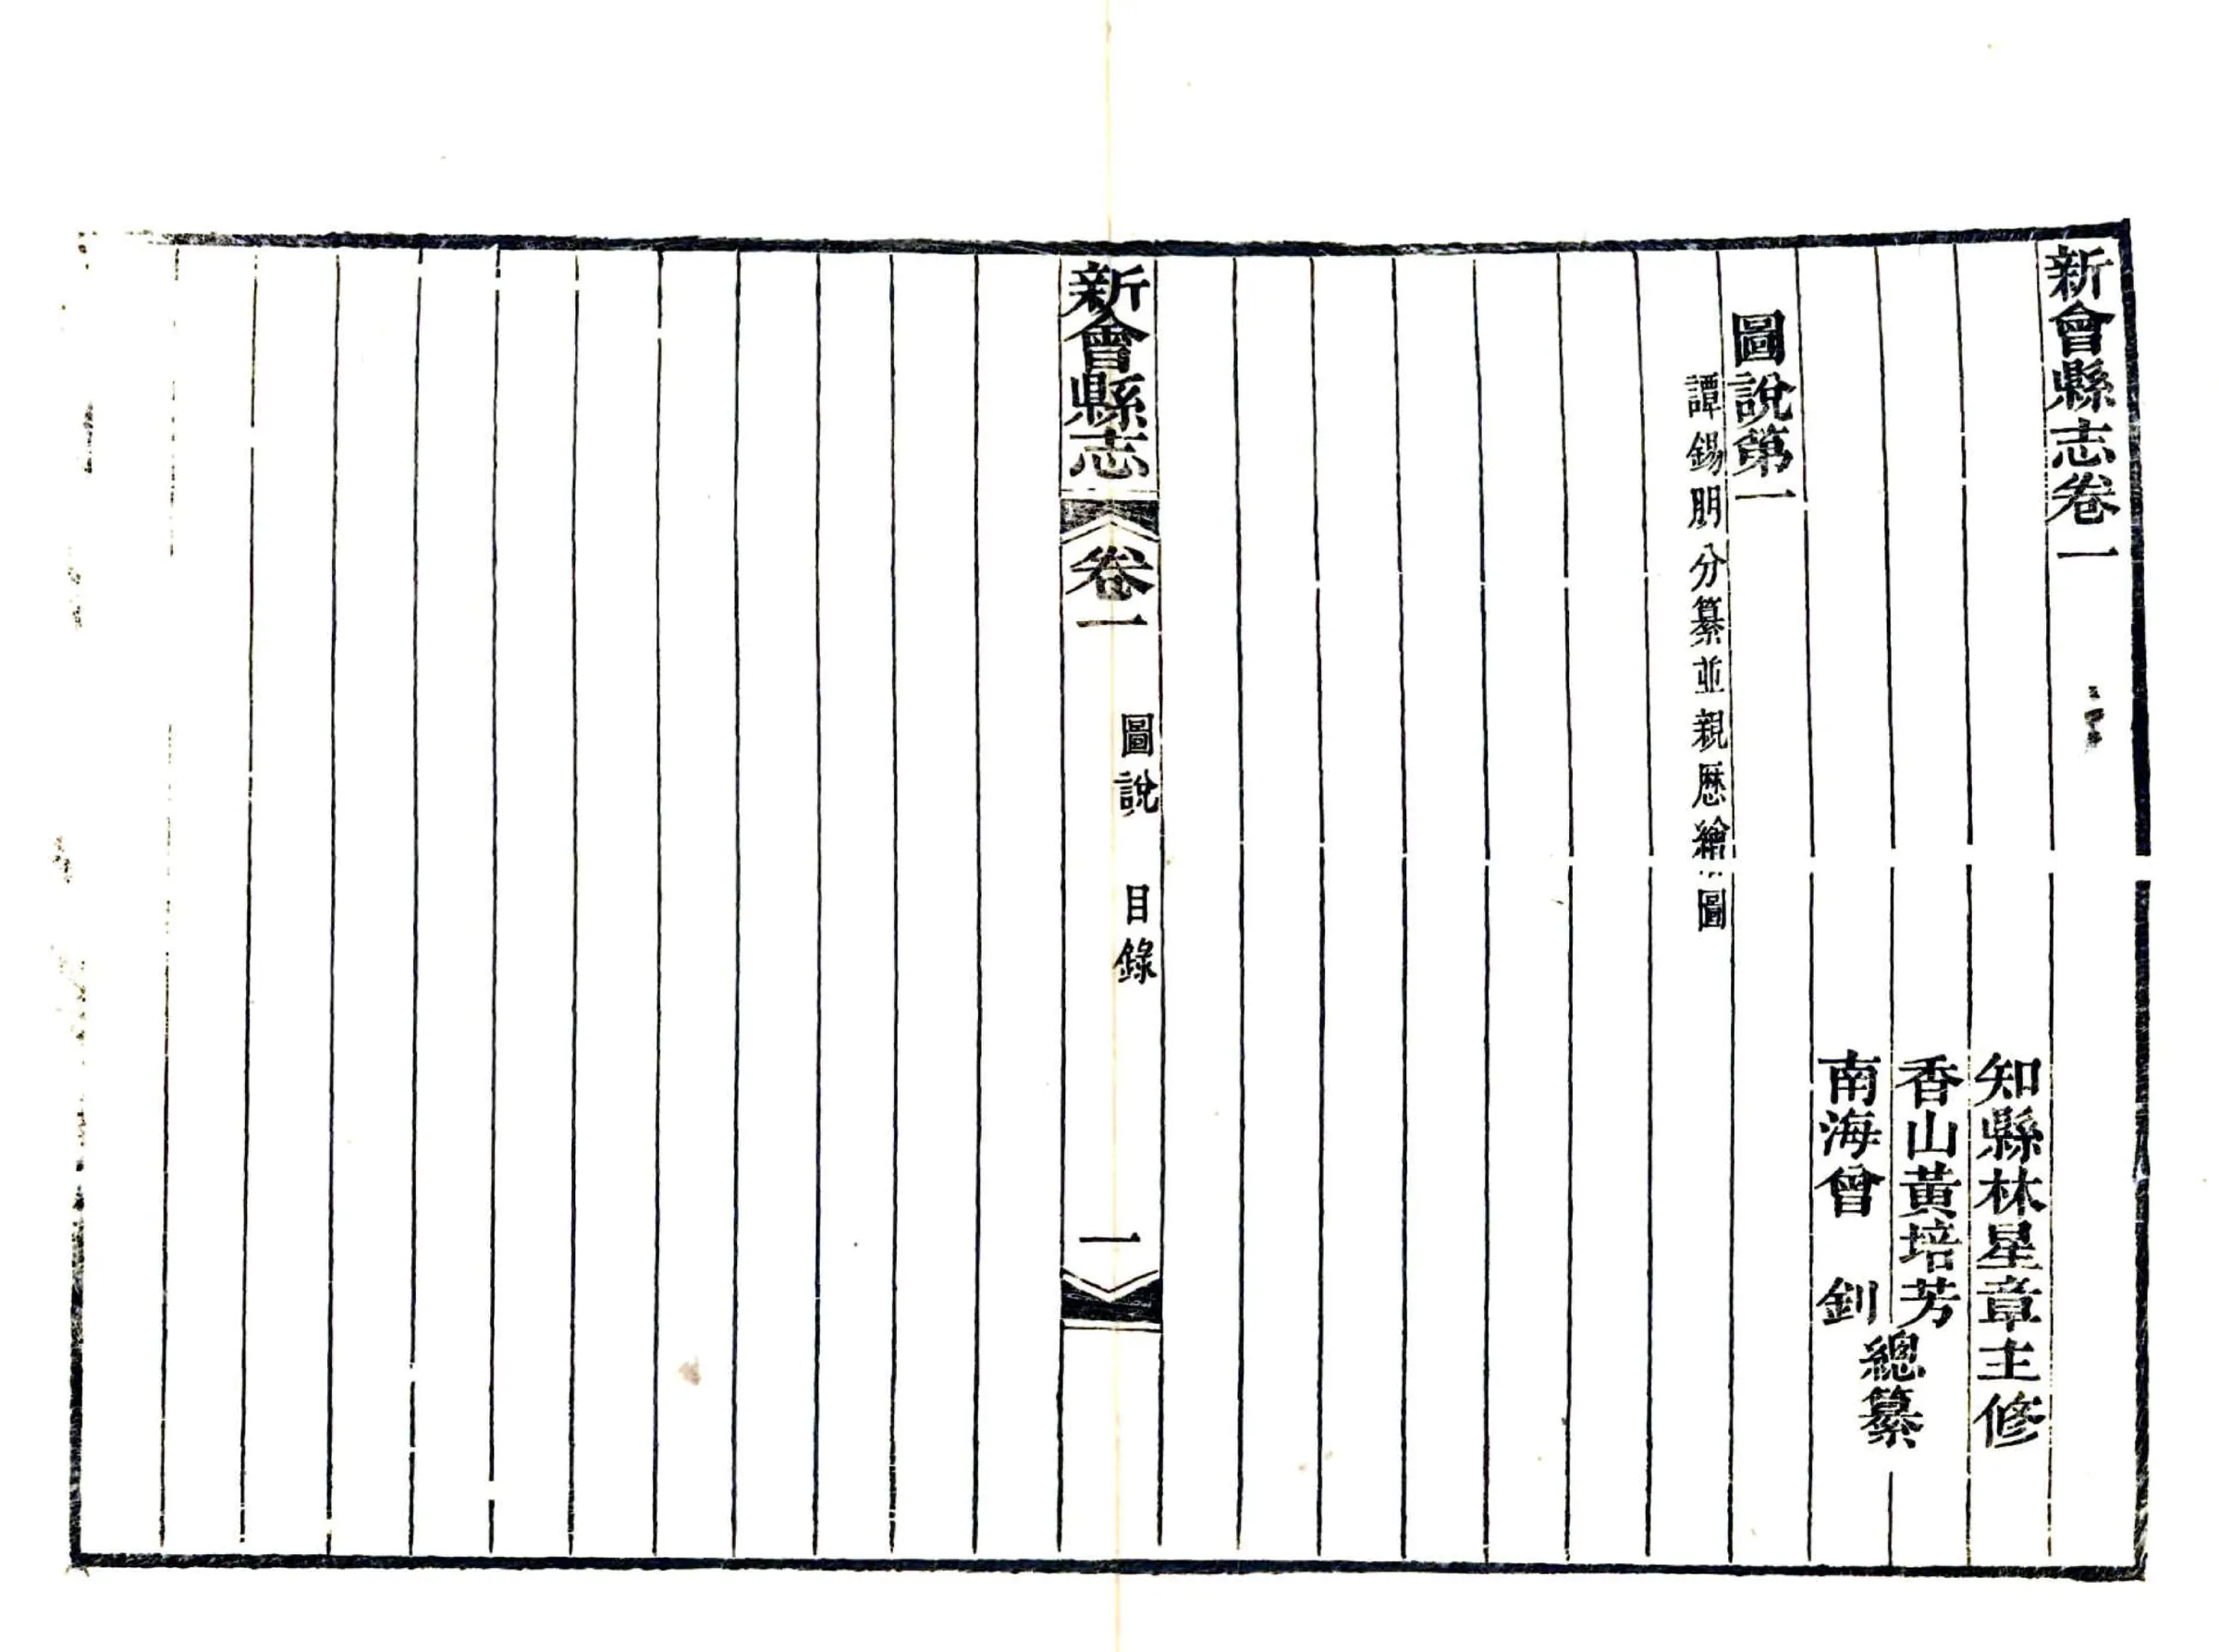 新會縣志卷一
知縣林星章主修
香山黃培芳
南海曾　釗
總纂
圖說第一
譚錫朋分纂並親歷繪圖
新會縣志
卷一
圖說　目錄
一